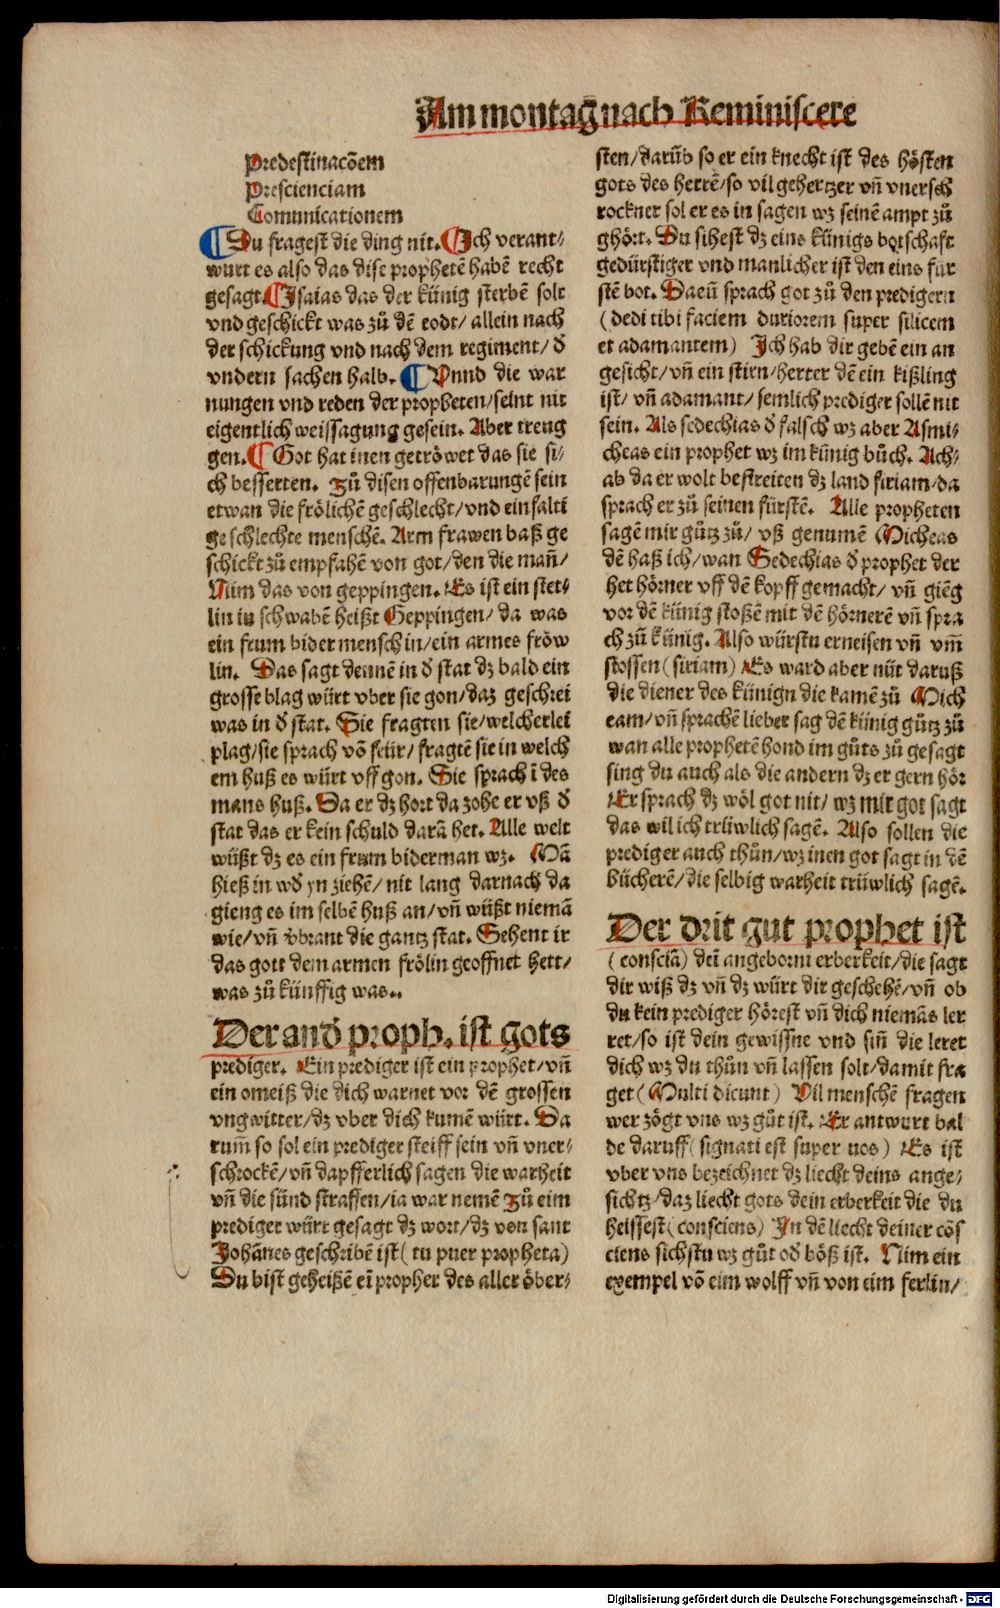 Am montag nach Reminiscere
Predestinacõem
Prescienciam
Comunicationem
Du fragest die ding nit. Ich verant/
wurt es also das dise prophetē habē recht
gesagt Isaias das der künig sterbē solt
vnd geschickt was zů dē todt/ allein nach
der schickung vnd nach dem regiment/ ð
vndern sachen halb. Vnnd die war
nungen vnd reden der propheten/ seint nit
eigentlich weissagung gesein. Aber treug
gen. Got hat inen getröwet das sie si/
ch besserten. Zů disen offenbarungē sein
etwan die frölichē geschlecht/ vnd einfalti
ge schlechte menschē. Arm frawen baß ge
schickt zů empfahē von got/ den die mañ/
Nim das von geppingen. Es ist ein stet/
lin in schwabē heißt Geppingen/ da was
ein frum bider mensch in/ ein armes fröw
lin. Das sagt dennē in ð stat dz bald ein
grosse blag würt vber sie gon/ daz geschrei
was in ð stat. Sie fragten sie/ welcherlei
plag/ sie sprach võ feür/ fragtē sie in welch
em huß es würt vff gon. Sie sprach ī des
mans huß. Da er dz hort da zohe er vß ð
stat das er kein schuld darã het. Alle welt
wüßt dz es ein frum biderman wz. Mã
hieß in wð yn ziehē/ nit lang darnach da
gieng es im selbē huß an/ vñ wüßt niemã
wie/ vñ v̄brant die gantz stat. Sehent ir
das gott dem armen frölin geoffnet hett/
was zů künffig was..
Der anð proph. ist gots
prediger. Ein prediger ist ein prophet/ vñ
ein omeiß die dich warnet vor dē grossen
vngwitter/ dz vber dich kumē würt. Da
rum̄ so sol ein prediger steiff sein vñ vner/
schrockē/ vñ dapfferlich sagen die warheit
vñ die sünd straffen/ ia war nemē Zů eim
prediger würt gesagt dz wort/ dz von sant
Johãnes geschribē ist ( tu puer propheta)
Du bist geheißē eī prophet des aller öber/
sten/ darūb so er ein knecht ist des hösten
gots des herrē/ so vil gehertzer vñ vnersch
rockner sol er es in sagen wz seinē ampt zů
ghört. Du sihest dz eins künigs botschaft
gedürstiger vnd manlicher ist den eins für
stē bot. Daeū sprach got zů den predigern
( dedi tibi faciem duriorem super silicem
et adamantem) Ich hab dir gebē ein an
gesicht/ vñ ein stirn/ herter dē ein kißling
ist/ vñ adamant/ semlich prediger sollē nit
sein. Als sedechias ð falsch wz aber Asmi/
cheas ein prophet wz im künig bůch. Ach/
ab da er wolt bestreiten dz land siriam/ da
sprach er zů seinen fürstē. Alle propheten
sagē mir gůtz zů/ vß genumē Micheas
dē haß ich/ wan Sedechias ð prophet der
het hörner vff dē kopff gemacht/ vñ giēg
vor dē künig stoßē mit dē hörnerē vñ spra
ch zů künig. Also würstu erneisen vñ vm̄
stossen ( siriam) Es ward aber nüt daruß
die diener des künign die kamē zů Mich
eam/ vñ sprachē lieber sag dē künig gůtz zů
wan alle prophetē hond im gůts zů gesagt
sing du auch als die andern dz er gern hör
Er sprach dz wöl got nit/ wz mir got sagt
das wil ich trüwlich sagē. Also sollen die
prediger auch thůn/ wz inen got sagt in dē
bücherē/ die selbig warheit trüwlich sagē.
Der drit gut prophet ist
( consciã) dei angeborni erberkeit/ die sagt
dir wiß dz vñ dz würt dir geschehē/ vñ ob
du kein prediger hörest vñ dich niemãs ler
ret/ so ist dein gewissne vnd siñ die leret
dich wz du thůn vñ lassen solt/ damit fra
get ( Multi dicunt) Vil menschē fragen
wer zögt vns wz gůt ist. Er antwurt bal
de daruff ( signati est super nos) Es ist
vber vns bezeichnet dz liecht deins ange/
sichtz/ daz liecht gots dein erberkeit die du
heissest ( consciens) In dē liecht deiner cõs
ciens sichstu wz gůt oð böß ist. Nim ein
exempel võ eim wolff vñ von eim ferlin/
Digitalisierung gefördert durch die Deutsche Forschungsgemeinschaft - DFG